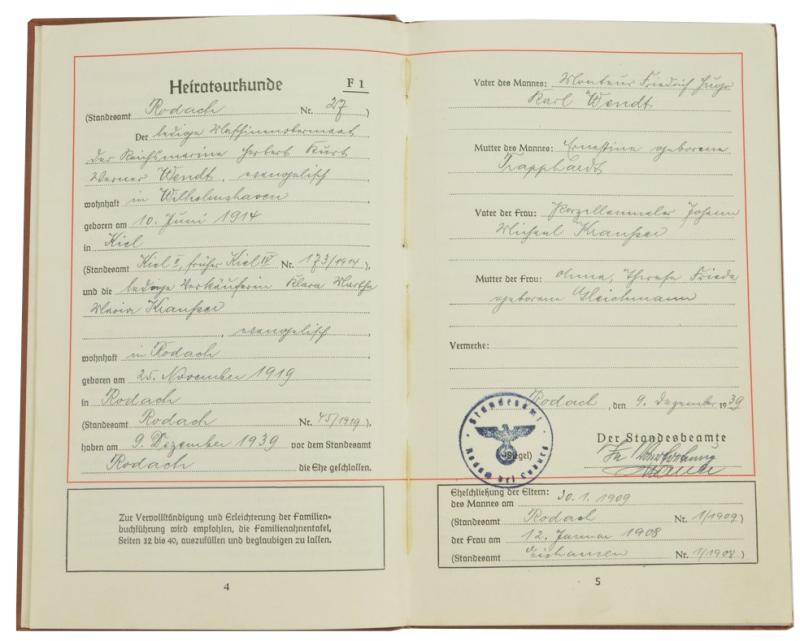 Heiratsurkunde F 1
(Standesamt Rodach Nr. 27)
Der ledige Maschinenobermaat
der Reichsmarine Herbert Kurt
Werner Wendt, evangelisch
wohnhaft in Wilhelmshaven
geboren am 10. Juni 1914
in Kiel
(Standesamt Kiel I, früher Kiel IV Nr. 173/1914),
und die ledige Verkäuferin Klara Martha
Maria
, evangelisch
wohnhaft in Rodach
geboren am 25. November 1919
in Rodach
(Standesamt Rodach Nr. 45/1919),
haben am 9. Dezember 1939 vor dem Standesamt
Rodach die Ehe geschlossen.
Zur Vervollständigung und Erleichterung der Familien-
buchführung wird empfohlen, die Familienahnentafel,
Seiten 32 bis 40, auszufüllen und beglaubigen zu lassen.
4
Vater des Mannes: Monteur Friedrich Hugo
Karl Wendt
Mutter des Mannes: Ernestine geborene
Trapphardt
Vater der Frau: Porzellanmaler Johann
Michael
Mutter der Frau: Therese Frieda
geborene Gleichmann
Vermerke:
Rodach, den 9. Dezember 1939
Standesamt
Rodach bei Coburg
(Siegel)
Der Standesbeamte
In Vertretung
Eheschließung der Eltern:
des Mannes am 30. 1. 1909
(Standesamt Rodach Nr. 1/1909)
der Frau am 12. Januar 1908
(Standesamt Nr. 1/1908)
5